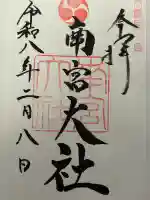 今拝
南宮大社
令和八年二月八日